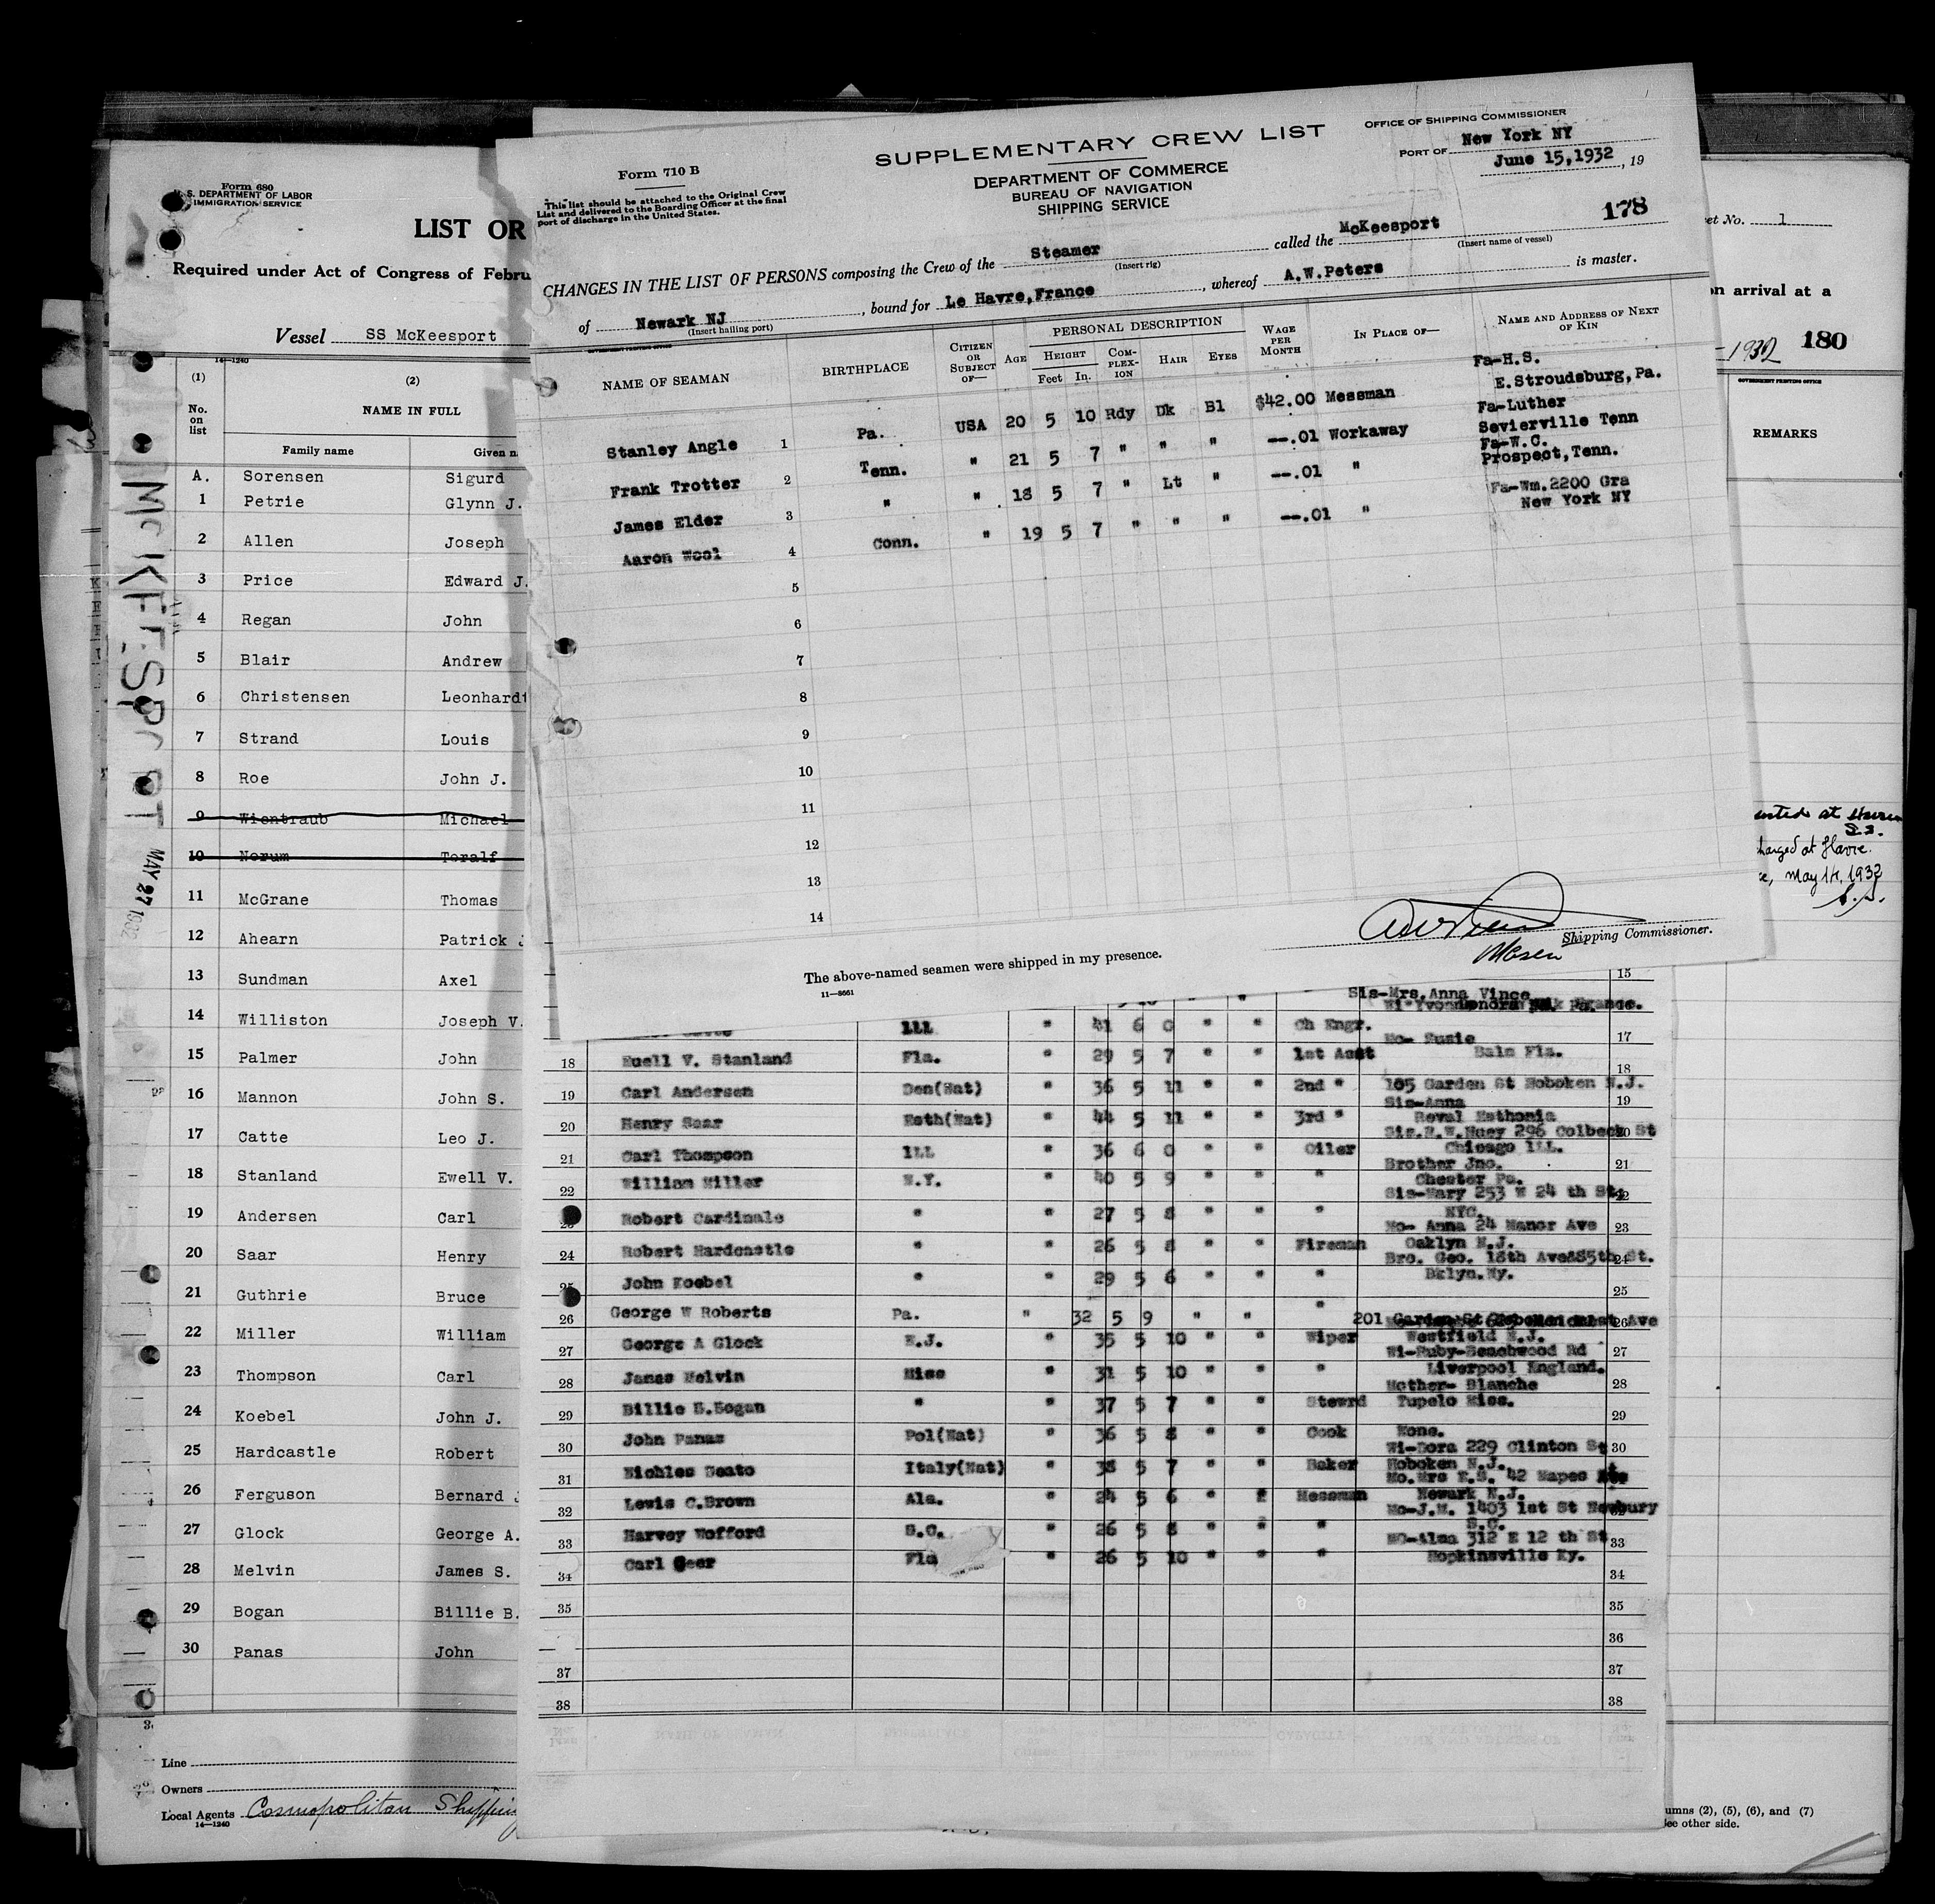 SUPPLEMENTARY CREW LIST
DEPARTMENT OF COMMERCE
BUREAU OF NAVIGATION
SHIPPING SERVICE
Form 710 B
This list should be attached to the Original Crew
List and delivered to the Boarding Officer at the final
port of discharge in the United States.
OFFICE OF SHIPPING COMMISSIONER
PORT OF New York NY
June 15,1932, 19
178
CHANGES IN THE LIST OF PERSONS composing the Crew of the Steamer called the McKeesport
(Insert rig) (Insert name of vessel)
of Newark NJ, bound for Le Havre,France, whereof A.W.Peters is master.
(Insert hailing port)
GOVERNMENT PRINTING OFFICE
NAME OF SEAMAN BIRTHPLACE CITIZEN OR SUBJECT OF— AGE PERSONAL DESCRIPTION HEIGHT Feet In. COM-PLEX-ION HAIR EYES WAGE PER MONTH IN PLACE OF— NAME AND ADDRESS OF NEXT OF KIN
Stanley Angle 1 Pa. USA 20 5 10 Rdy Dk Bl $42.00 Messman Fa-H.S.
E.Stroudsburg,Pa.
Frank Trotter 2 Tenn. " 21 5 7 " " " --.01 Workaway Fa-Luther
Sevierville Tenn
James Elder 3 " " 18 5 7 " Lt " --.01 " Fa-W.C.
Prospect,Tenn.
Aaron Wool 4 Conn. " 19 5 7 " " " --.01 " Fa-Wm.2200 Gra
New York NY
5
6
7
8
9
10
11
12
13
14
Shipping Commissioner.
The above-named seamen were shipped in my presence.
11—8661
Form 680
U. S. DEPARTMENT OF LABOR
IMMIGRATION SERVICE
LIST OR
Required under Act of Congress of Febru
Vessel SS McKeesport
14—1240
(1) (2)
No. on list
NAME IN FULL
Family name Given n
A. Sorensen Sigurd
1 Petrie Glynn J.
2 Allen Joseph
3 Price Edward J.
4 Regan John
5 Blair Andrew
6 Christensen Leonhardt
7 Strand Louis
8 Roe John J.
9 Wientraub Michael
10 Norum Toralf
11 McGrane Thomas
12 Ahearn Patrick J
13 Sundman Axel
14 Williston Joseph V.
15 Palmer John
16 Mannon John S.
17 Catte Leo J.
18 Stanland Ewell V.
19 Andersen Carl
20 Saar Henry
21 Guthrie Bruce
22 Miller William
23 Thompson Carl
24 Koebel John J.
25 Hardcastle Robert
26 Ferguson Bernard J
27 Glock George A.
28 Melvin James S.
29 Bogan Billie B.
30 Panas John
Line
Owners
Local Agents Cosmopolitan Shipping
14—1240
McKEESPORT
MAY 27 1932
et No. 1
on arrival at a
1932 180
GOVERNMENT PRINTING OFFICE
REMARKS
at Havre
charged at Havre.
May 14, 1932
umns (2), (5), (6), and (7)
See other side.
15
Sis-Mrs.Anna Vince
ILL " 41 6 0 " " Ch Engr. 17
Mo- Susie
18 Euell V. Stanland Fla. " 29 5 7 " " 1st Asst Fla. 18
19 Carl Andersen Den(Nat) " 36 5 11 " " 2nd " 105 Garden St Hoboken N.J. 19
Sis-Anna
20 Henry Saar Esth(Nat) " 44 5 11 " " 3rd " Reval Esthonia 20
Sis.R.W.Huey 296 Colbeck St
21 Carl Thompson ILL " 36 6 0 " " Oiler Chicago ILL. 21
Brother Jno.
22 William Miller N.Y. " 40 5 9 " " " Chester Pa. 22
Sis-Mary 253 W 24 th St.
Robert Cardinale " " 27 5 8 " " " NYC. 23
Mo- Anna 24 Manor Ave
24 Robert Hardcastle " " 26 5 8 " " Fireman Oaklyn N.J. 24
Bro. Geo. 18th Ave&85th St.
25 John Koebel " " 29 5 6 " " " Bklyn.Ny. 25
26 George W Roberts Pa. " 32 5 9 " " " 201 Garden St Hoboken 26
27 George A Glock N.J. " 35 5 10 " " Wiper Westfield N.J. 27
Wi-Ruby-Beachwood Rd
28 James Melvin Miss " 31 5 10 " " " Liverpool England. 28
Mother- Blanche
29 Billie B.Bogan " " 37 5 7 " " Stewrd Tupelo Miss. 29
30 John Panas Pol(Nat) " 36 5 8 " " Cook None. 30
Wi-Dora 229 Clinton St
31 Nichles Deato Italy(Nat) " 38 5 7 " " Baker Hoboken N.J.
Mo.Mrs E.S. 42 Mapes Ave
32 Lewis C.Brown Ala. " 24 5 6 " " Messman Newark N.J. 32
Mo-J.M. 1403 1st St Newbury
33 Harvey Wofford S.C. " 26 5 8 " " " S.C. 33
MO-Alma 312 E 12 th St
34 Carl Geer Fla " 26 5 10 " " " Hopkinsville Ky. 34
35 35
36
37 37
38 38